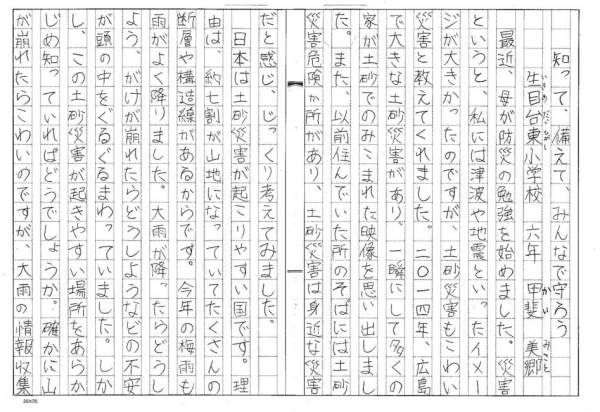 知って、備えて、みんなで守ろう
生目台東小学校　六年　甲斐　美郷
いきめだいひがし
かい
みさと
最近、母が防災の勉強を始めました。災害
というと、私には津波や地震といったイメー
ジが大きかったのですが、土砂災害もこわい
災害と教えてくれました。二〇一四年、広島
で大きな土砂災害があり、一瞬にして多くの
家が土砂でのみこまれた映像を思い出しまし
た。また、以前住んでいた所のそばには土砂
災害危険か所があり、土砂災害は身近な災害
だと感じ、じっくり考えてみました。
日本は土砂災害が起こりやすい国です。理
由は、約七割が山地になっていてたくさんの
断層や構造線があるからです。今年の梅雨も
雨がよく降りました。大雨が降ったらどうし
よう、がけが崩れたらどうしようなどの不安
が頭の中をぐるぐるまわっていました。しか
し、この土砂災害が起きやすい場所をあらか
じめ知っていればどうでしょうか。確かに山
が崩れたらこわいのですが、大雨の情報収集
20×20